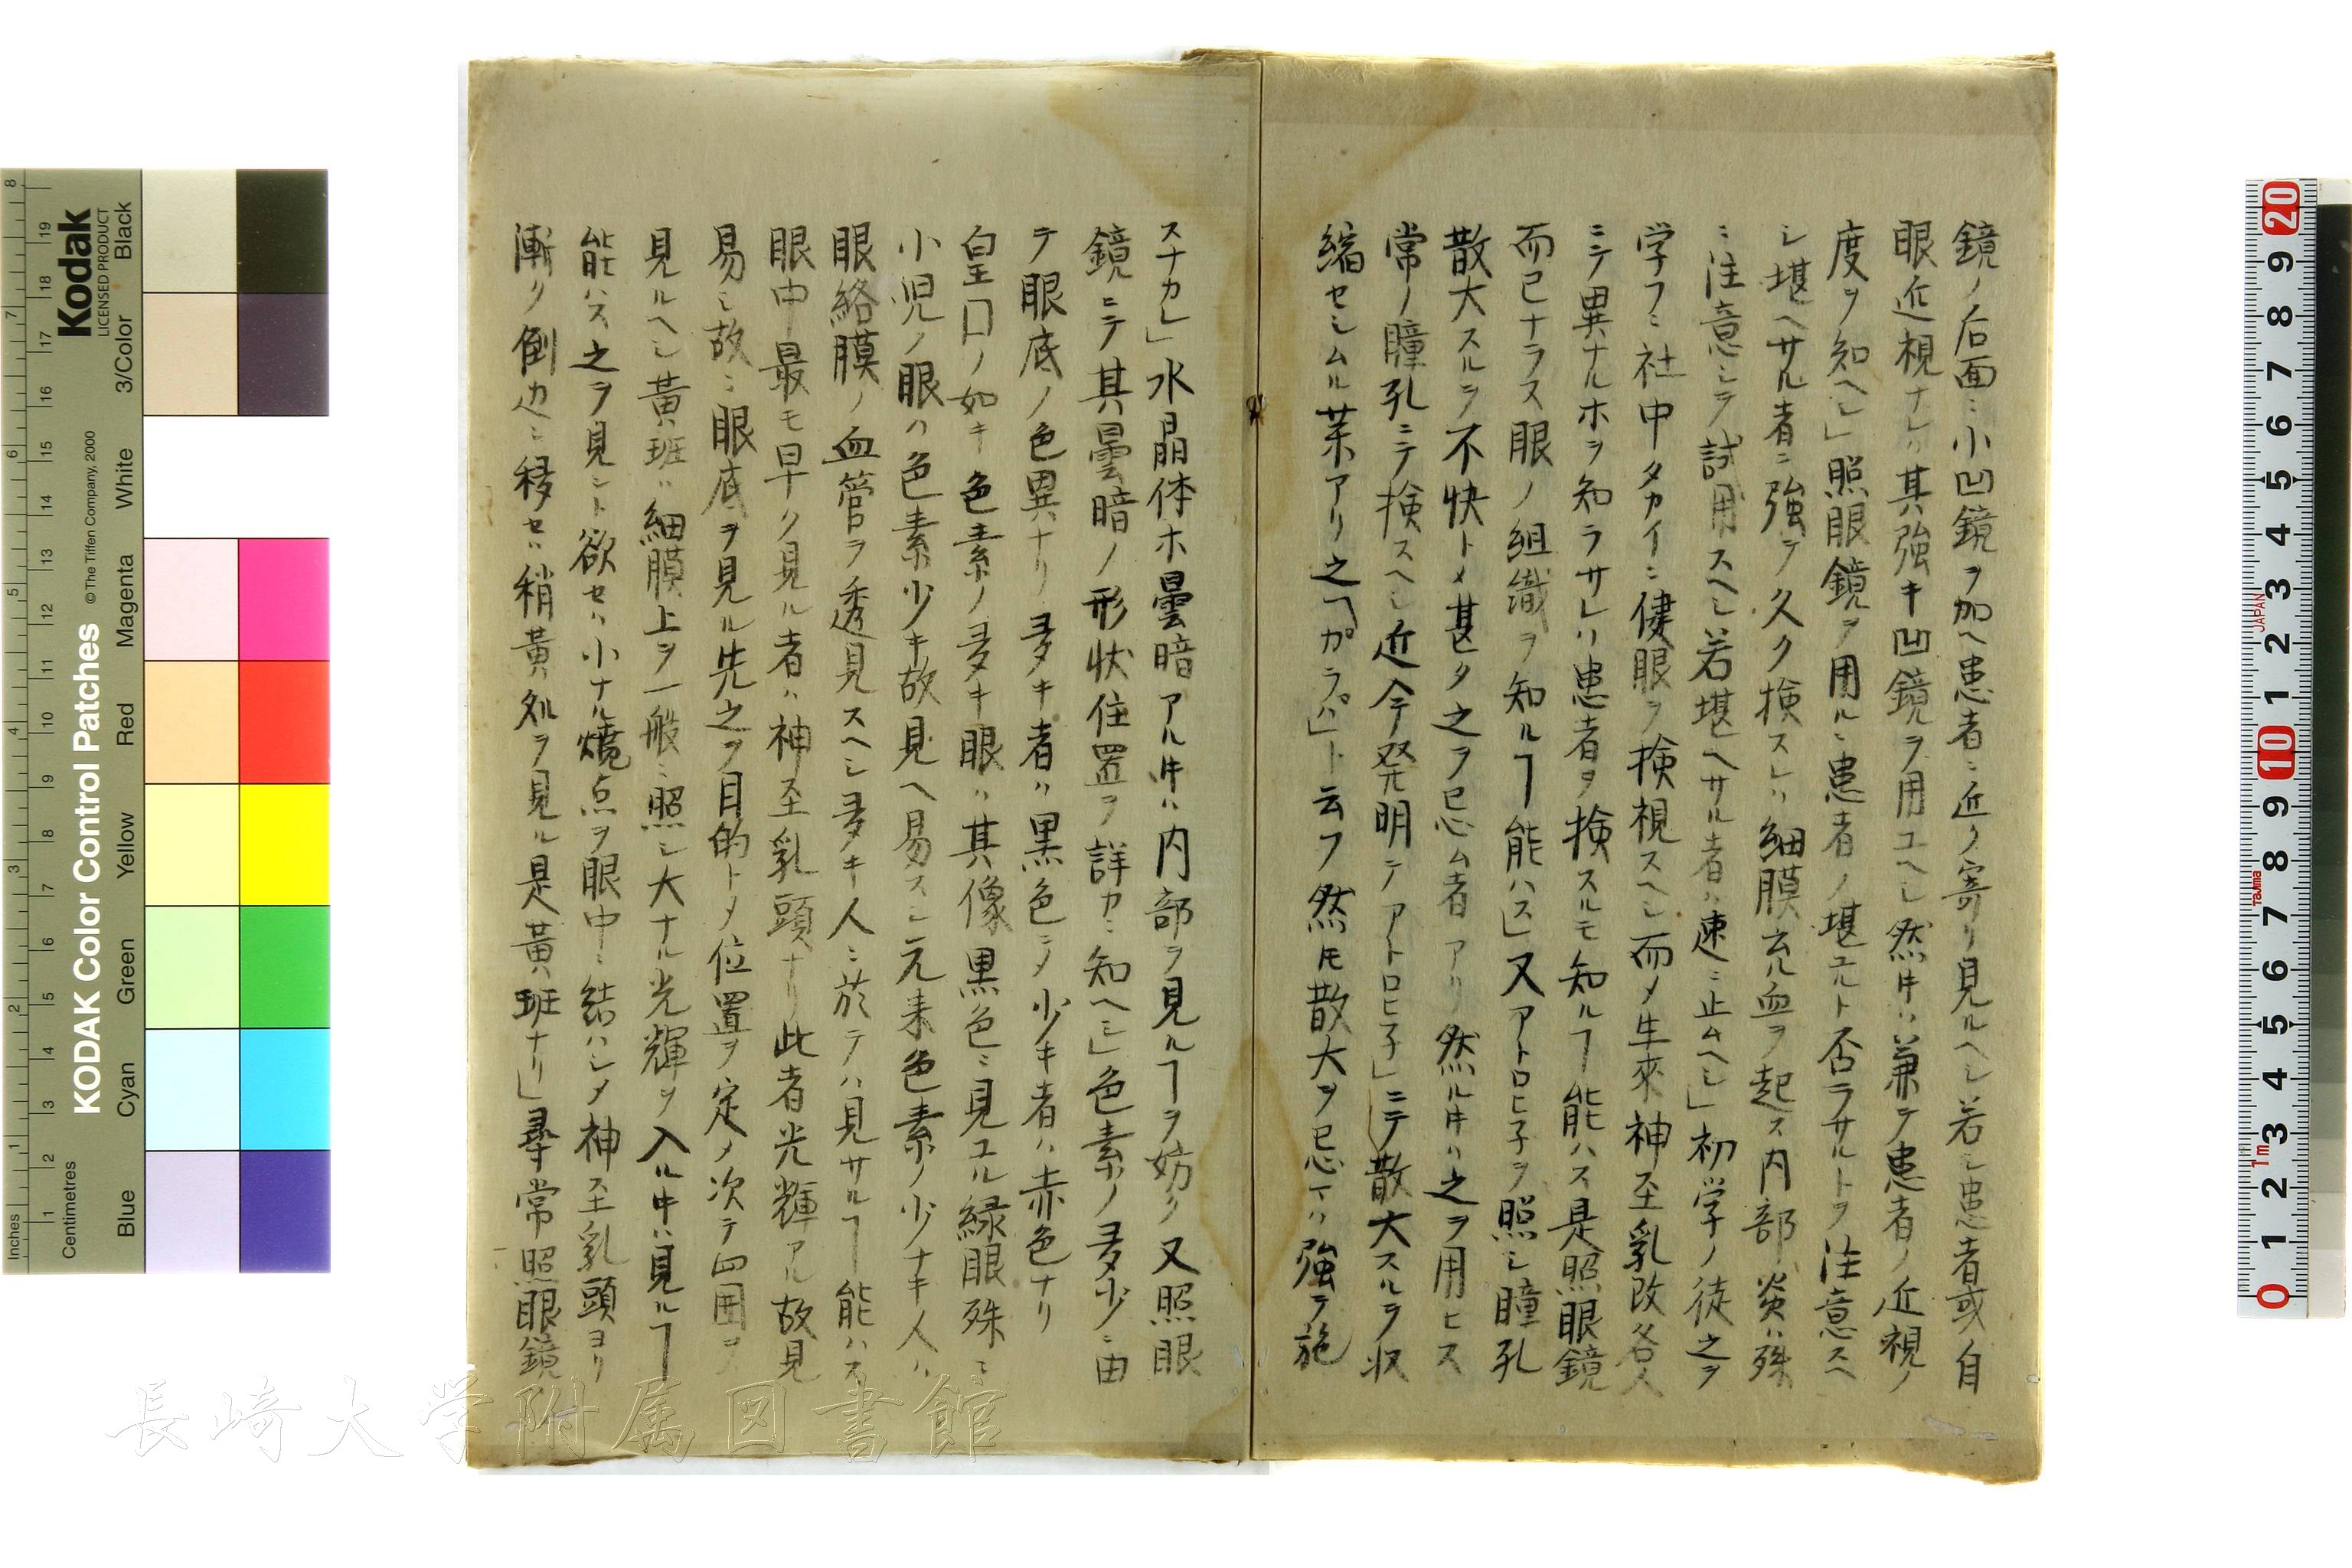 鏡ノ后面ニ小凹鏡ヲ加ヘ患者ニ近ク寄リ見ルヘシ若シ患者或自
眼近視ナレハ其強キ凹鏡ヲ用ユヘシ然ル𪜈ハ兼テ患者ノ近視ノ
度ヲ知ヘシ」照眼鏡ヲ用ルニ患者ノ堪ユルト否ラサルトヲ注意スヘ
シ堪ヘサル者ニ強テ久ク検スレハ細膜充血ヲ起ス内部ノ炎ハ殊
ニ注意シテ試用スヘシ若堪ヘサル者ハ速ニ止ムヘシ」初学ノ徒之ヲ
学フニ社中タカイニ健眼ヲ検視スヘシ而メ生來神至乳改各人
ニテ異ナルホヲ知ラサレハ患者ヲ検スルモ知ルヿ能ハス是照眼鏡
而已ナラス眼ノ組織ヲ知ルヿ能ハス」又アトロヒ子ヲ照シ瞳孔
散大スルヲ不快トメ甚タ之ヲ忌ム者アリ然ル𪜈ハ之ヲ用ヒス
常ノ瞳孔ニテ検スヘシ近今発明テアトロヒ子」ニテ散大スルヲ収
縮セシムル薬アリ之「カラハ」ト云フ然𪜈散大ヲ忌マハ強テ施
スナカレ」水晶体ホ曇暗アル𪜈ハ内部ヲ見ルヿヲ妨ク又照眼
鏡ニテ其曇暗ノ形状住置ヲ詳カニ知ヘシ」色素ノ多少ニ由
テ眼底ノ色異ナリ多キ者ハ黒色ニメ少キ者ハ赤色ナリ
皇囗ノ如キ色素ノ多キ眼ハ其像黒色ニ見ユル緑眼殊ニ
小児ノ眼ハ色素少キ故見ヘ易スシ元来色素ノ少ナキ人ハ
眼絡膜ノ血管ヲ透見スヘシ多キ人ニ於テハ見サルヿ能ハス
眼中最モ早ク見ル者ハ神至乳頭ナリ此者光輝アル故見
易シ故ニ眼底ヲ見ル先之ヲ目的トメ位置ヲ定メ次テ四囲ヲ
見ルヘシ黄班ハ細膜上ヲ一般ニ照シ大ナル光輝ヲ入ル𪜈ハ見ルヿ
能ハス之ヲ見ント欲セハ小ナル焼点ヲ眼中ニ結ハシメ神至乳頭ヨリ
漸ク側辺ニ移セハ稍黄処ヲ見ル是黄班ナリ」尋常照眼鏡
長崎大学附属図書館
KODAK Color Control Patches
Kodak
LICENSED PRODUCT
© The Tiffen Company, 2000
Inches
Centimetres
Blue
Cyan
Green
Yellow
Red
Magenta
White
3/Color
Black
JAPAN
Tajima
1m